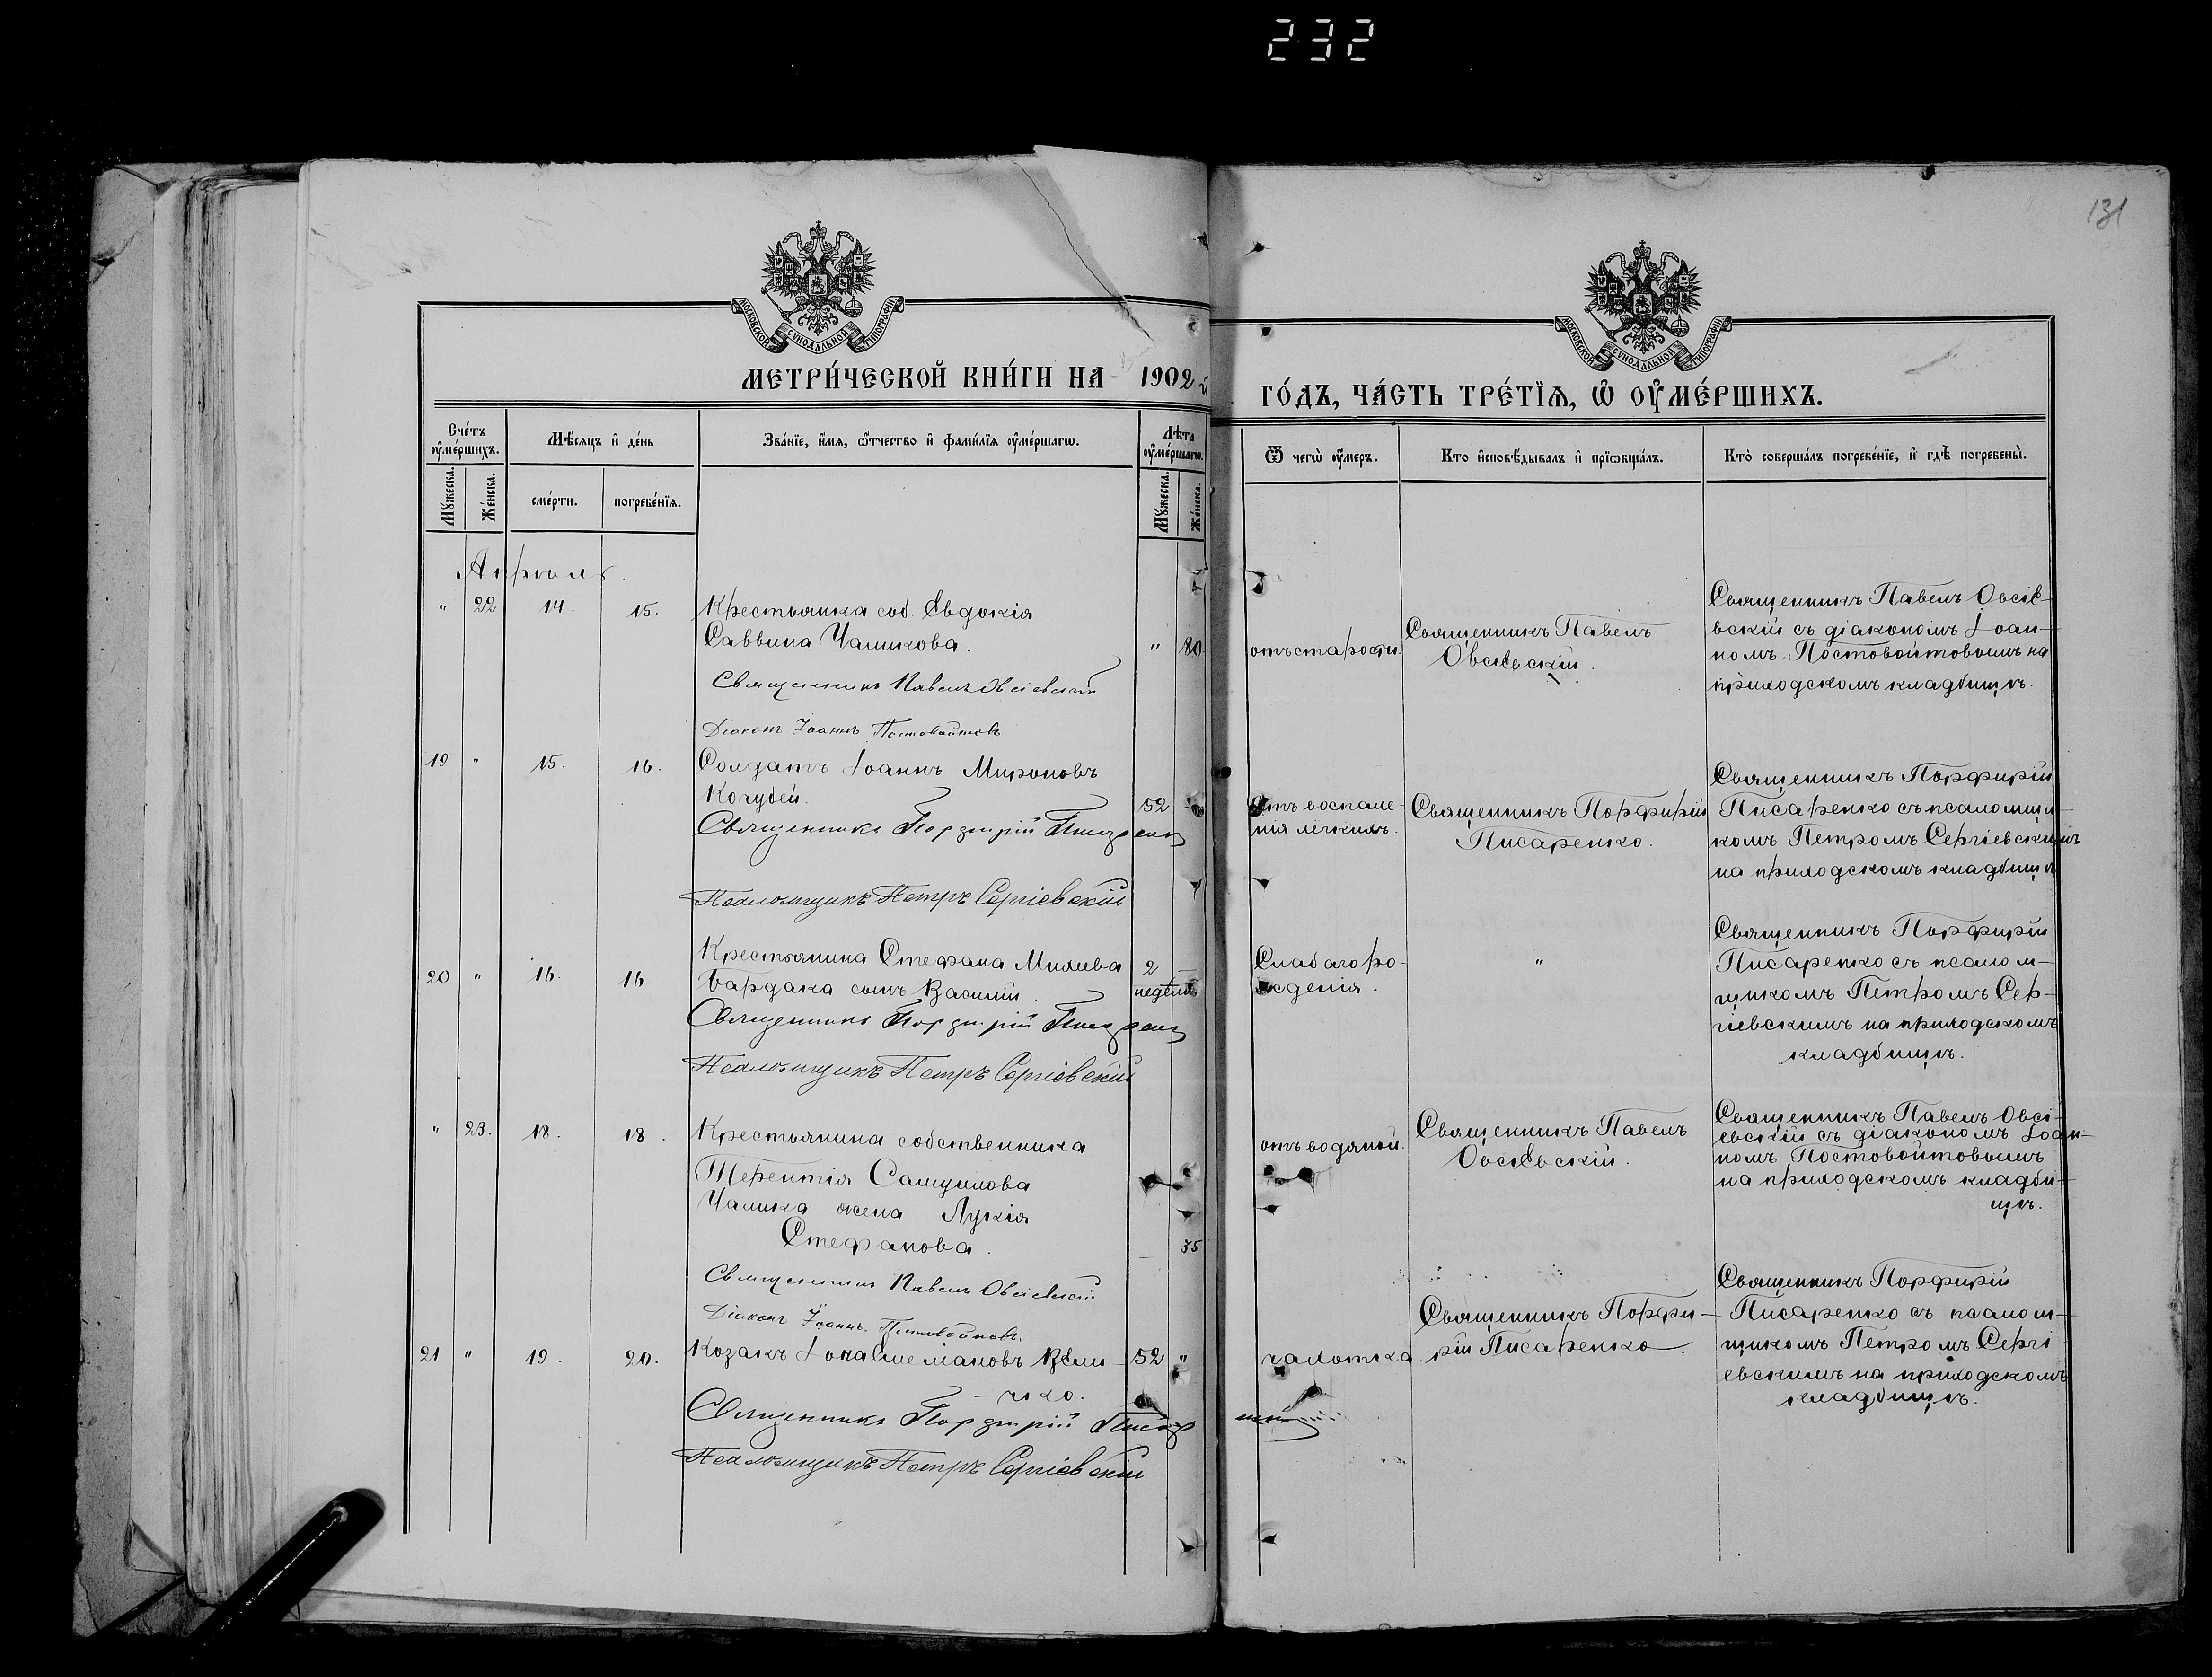 232
131
МОСКОВСКОЙ СѴНОДАЛЬНОЙ ТИПОГРАФІИ
МОСКОВСКОЙ СѴНОДАЛЬНОЙ ТИПОГРАФІИ
МЕТРИ́ЧЕСКОЙ КНИ́ГИ НА 1902 й
ГО́ДЪ, ЧА́СТЬ ТРЕ́ТЇѦ, Ѡ҆ ОУ҆МЕ́РШИХЪ.
Сче́тъ оу҆ме́ршихъ.
Мѣ́сѧцъ и҆ де́нь
Зва́нїе, и҆́мѧ, ѻ҆́тчество и҆ фами́лїѧ оу҆ме́ршагѡ.
Лѣ́та оу҆ме́ршагѡ.
Ѿ чегѡ̀ оу҆́меръ.
Кто̀ и҆сповѣ́дывалъ и҆ прїѡбща́лъ.
Кто̀ соверша́лъ погребе́нїе, и҆ гдѣ̀ погребены̀.
Мꙋ́жеска.
Же́нска.
сме́рти.
погребе́нїѧ.
Мꙋ́жеска.
Же́нска.
Апрѣль.
" 22 14. 15. Крестьянка соб. Евдокія
Саввина Чаликова. " 80.
Священникъ Павелъ Овсіевскій
Діаконъ Іоаннъ Постовойтовъ
отъ старости.
Священникъ Павелъ
Овсіевскій.
Священникъ Павелъ Овсіе-
вскій съ діакономъ Іоан-
номъ Постовойтовымъ на
приходскомъ кладбищѣ.
19 " 15. 16. Солдатъ Іоаннъ Мироновъ
Кочубей. 52
Священникъ Порфирій Писаренко
Псаломщикъ Петръ Сергіевскій
Отъ воспале-
нія легкихъ.
Священникъ Порфирій
Писаренко.
Священникъ Порфирій
Писаренко съ псаломщи-
комъ Петромъ Сергіевскимъ
на приходскомъ кладбищѣ
20 " 16. 16 Крестьянина Стефана
Бардака сынъ Василій. 2 недѣли
Священникъ Порфирій Писаренко
Псаломщикъ Петръ Сергіевскій
Слабаго ро-
жденія.
"
Священникъ Порфирій
Писаренко съ псалом-
щикомъ Петромъ Сер-
гіевскимъ на приходскомъ
кладбищѣ.
" 23. 18. 18. Крестьянина собственника
Терентія Самуилова
Чалика жена Лукія
Стефанова. 35
Священникъ Павелъ Овсіевскій
Діаконъ Іоаннъ Постовойтовъ.
отъ водяной.
Священникъ Павелъ
Овсіевскій.
Священникъ Павелъ Овсі-
евскій съ діакономъ Іоан-
номъ Постовойтовымъ
на приходскомъ кладби-
щѣ.
21 " 19. 20. Козакъ Вели- 52 "
- чко.
Священникъ Порфирій Писаренко
Псаломщикъ Петръ Сергіевскій
чахотка.
Священникъ Порфи-
рій Писаренко.
Священникъ Порфирій
Писаренко съ псалом-
щикомъ Петромъ Сергі-
евскимъ на приходскомъ
кладбищѣ.